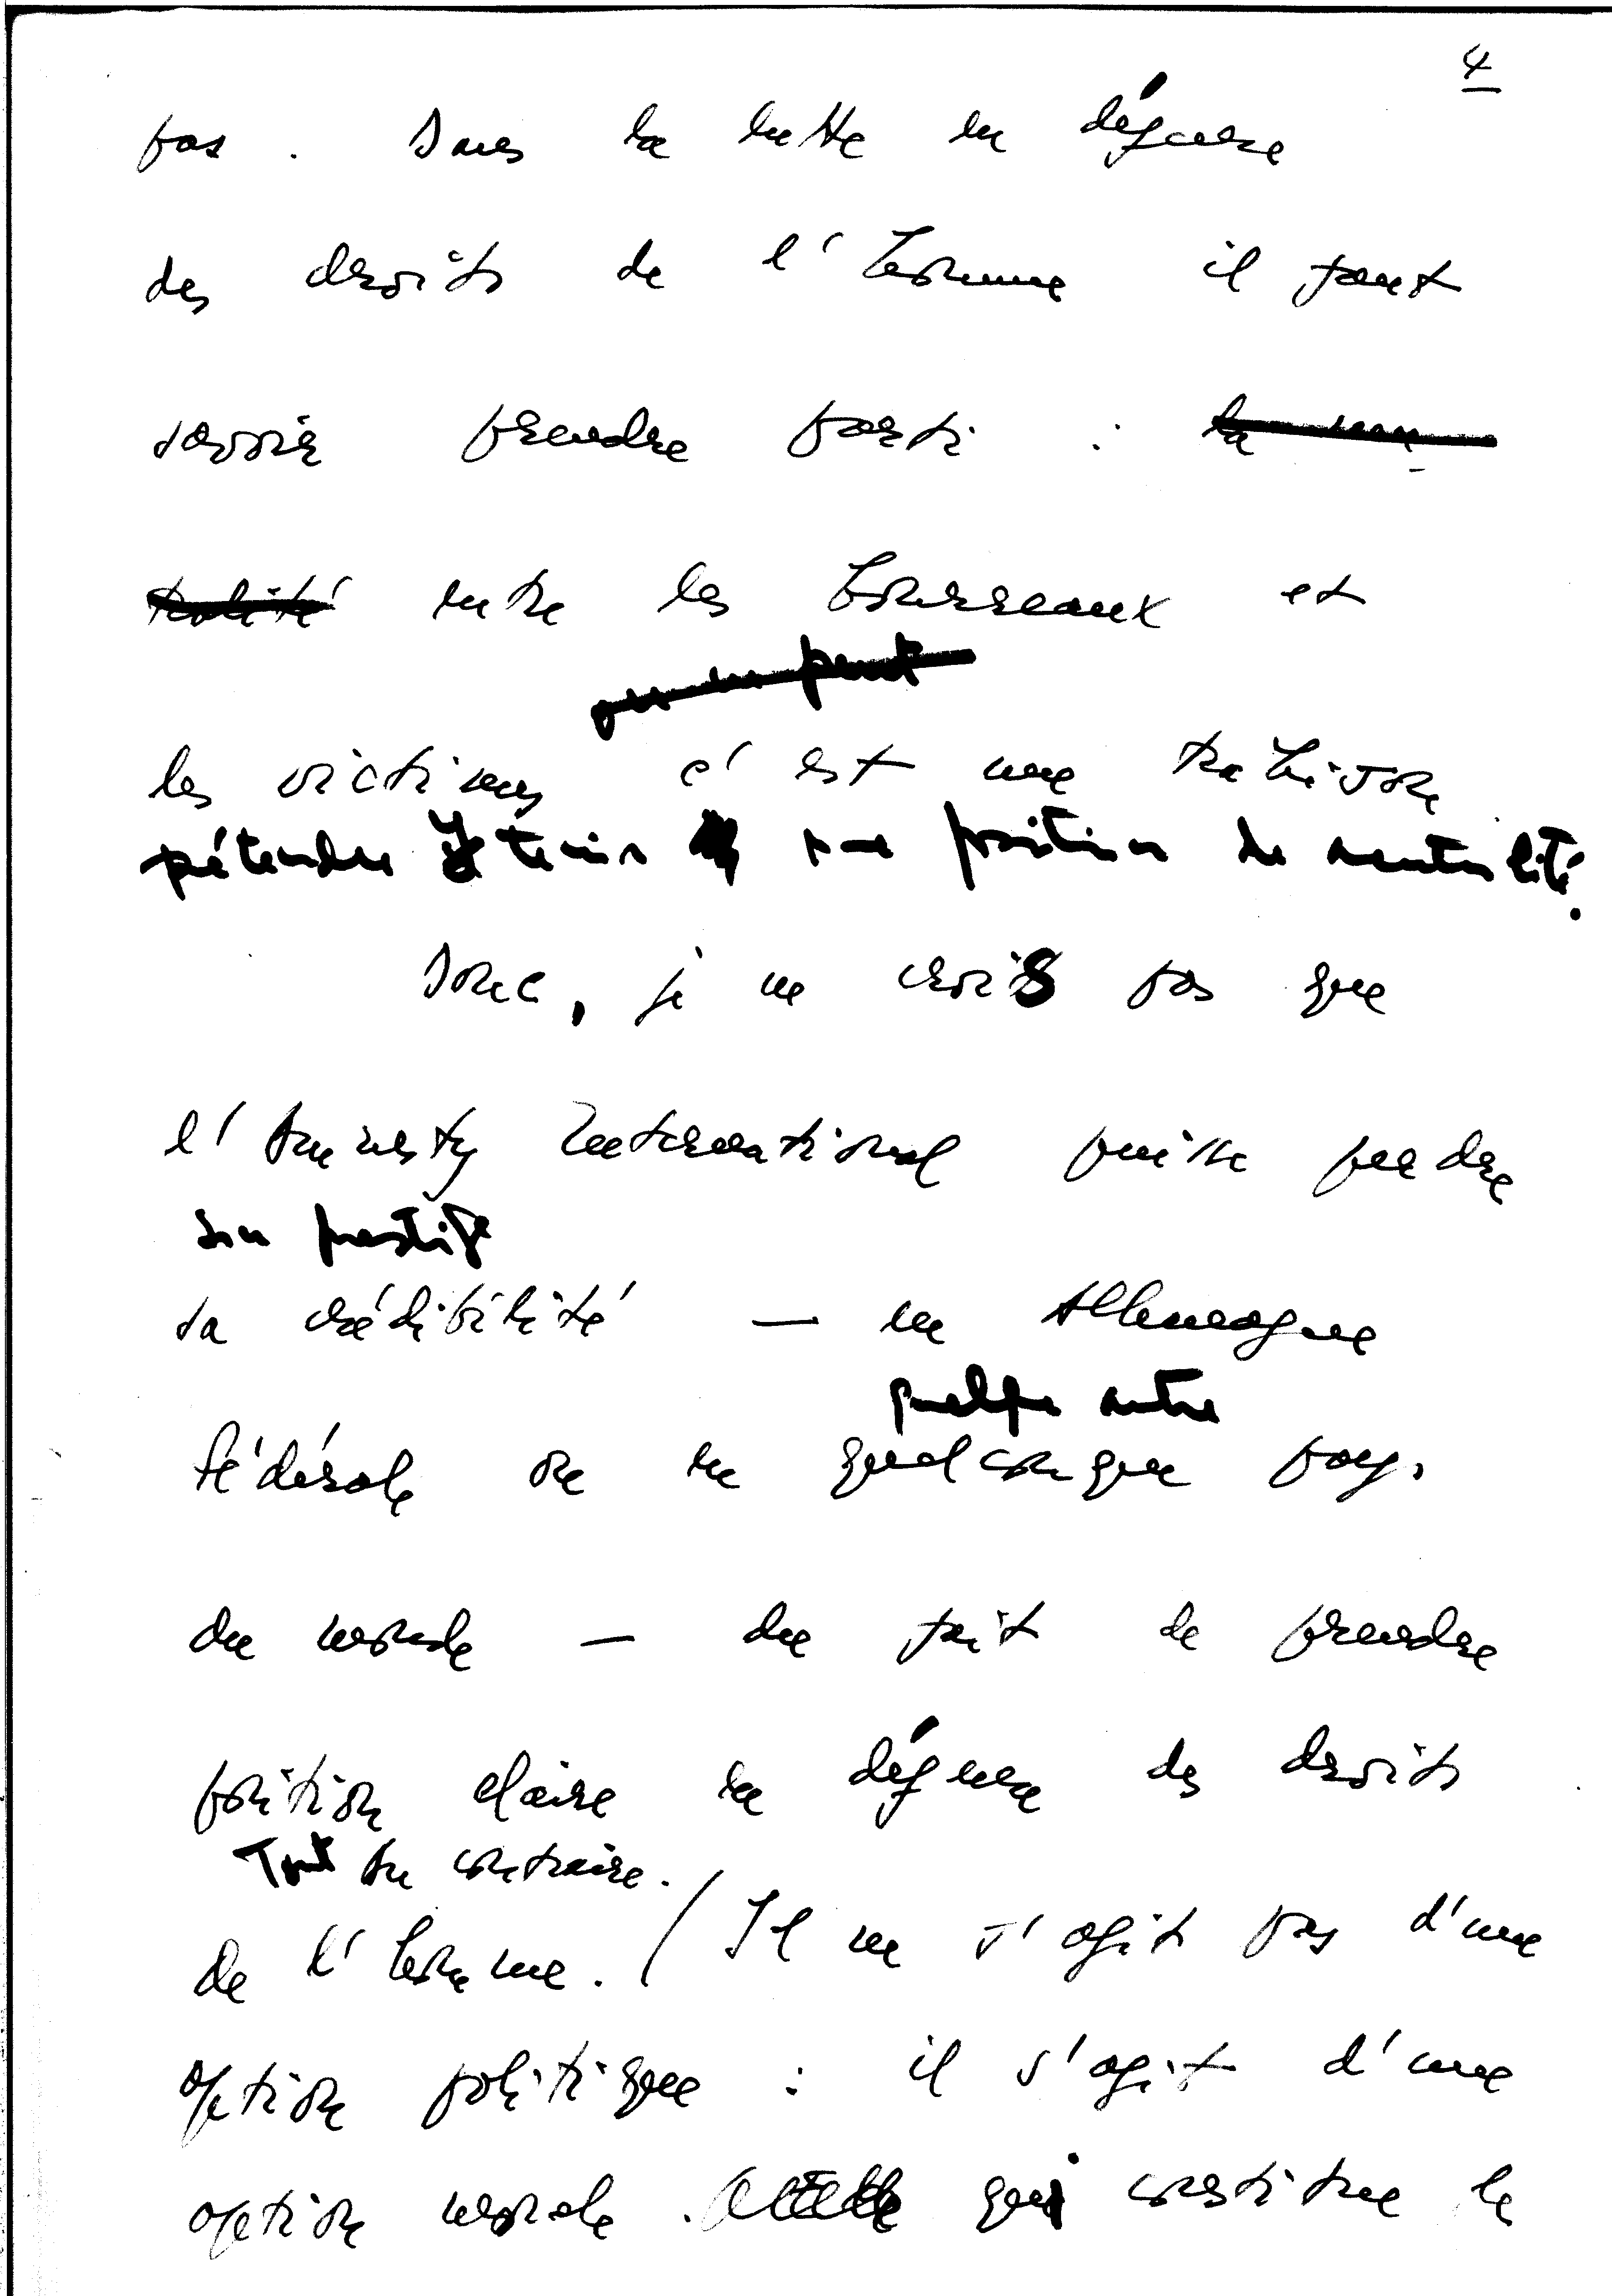 4
pas. Dans la lutte en défense
des droits de l'homme il faut
savoir prendre parti : la neu-
tralité entre les bourreaux et
que on peut
les victimes c'est une trahison
prétendre tenir une position de neutralité.
Donc, je ne crois pas que
l'Amnesty International puisse perdre
son prestige
sa crédibilité — en Allemagne
quelque autre
fédérale ou en quelconque pays
du monde — du fait de prendre
position claire en défense des droits
Tout au contraire.
de l'homme. / Il ne s'agit pas d'une
option politique : il s'agit d'une
option morale. qui constitue le